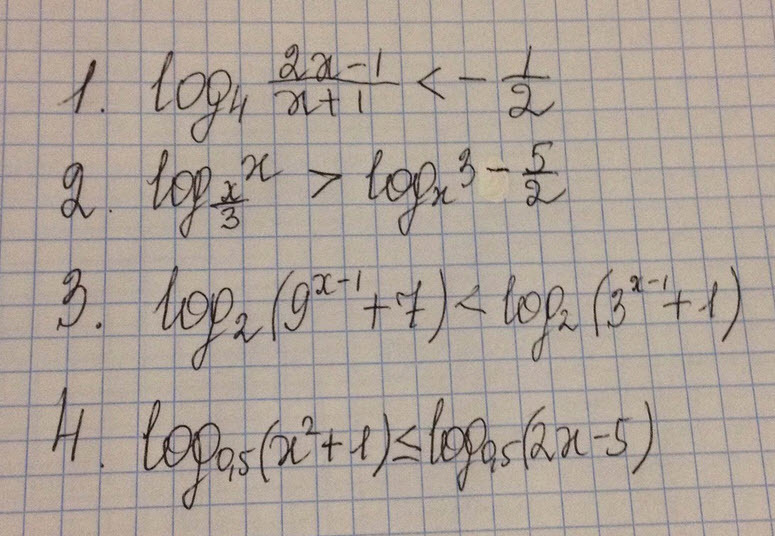 1. log₄ (2x-1)/(x+1) < - 1/2
2. log_(x/3) x > logₓ 3 - 5/2
3. log₂ (9^(x-1) + 7) < log₂ (3^(x-1) + 1)
4. log₀,₅ (x² + 1) ≤ log₀,₅ (2x - 5)